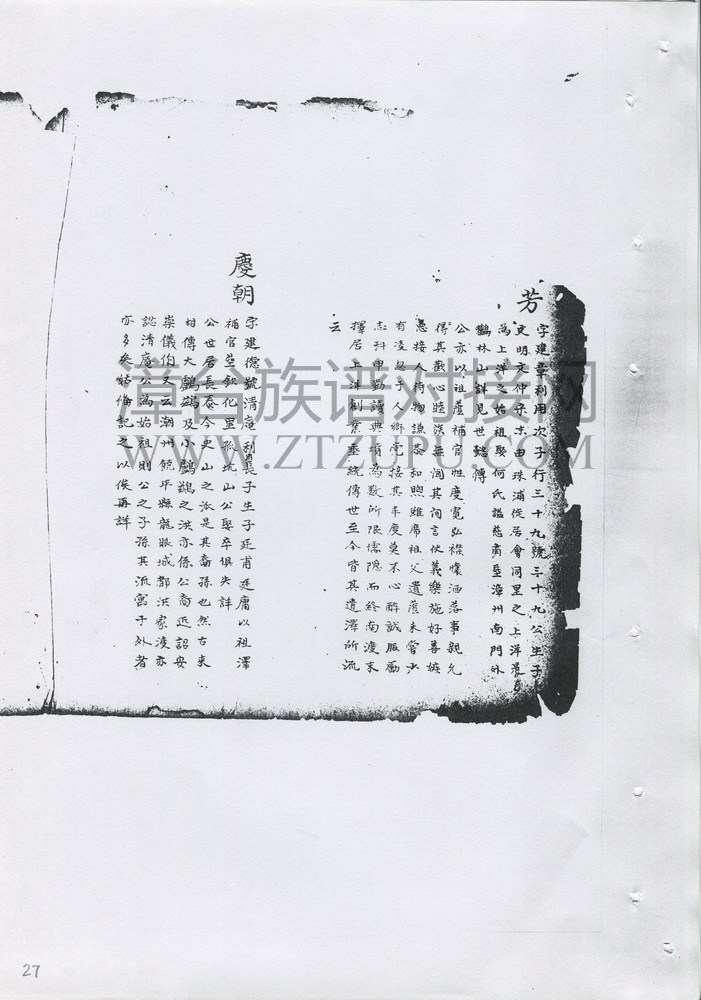 芳
字建章利用次子行三十九號三十九公生子
史明文仲宗京由珠浦徙居會同里之上洋是
為上洋之始祖娶何氏諡慈肅塟漳州南門外
鶴林山詳見世懿傳
公亦以祖蔭補官性度寬弘襟懷洒落事親允
得其歡心睦族無間其詞言仗義樂施好善嫉
惡接人待物謙恭和煦雖席祖父遺蔭未嘗少
有凌忽于人鄉党接其丰度莫不心醉誠服勵
志科甲勤讀典墳為數所限儒隱而終南渡來
擇居上洋創業垂統傳世至今皆其遺澤所流
云
慶朝
字建德號清庵利長子生子廷甫廷庸以祖澤
補官塟欽化里 坑山公娶卒俱失詳
公世居長泰今史山之派是其裔孫也然古來
相傳大鸕鷀及小鸕鷀之洪亦係公裔近詔安
崇儀伯又云潮州饒平縣龍眼城都洪家渡亦
認清庵公為始祖則公之子孫其流寓于外者
亦多矣姑備記之以俟再詳
漳台族谱对接网
WWW.ZTZUPU.COM
27